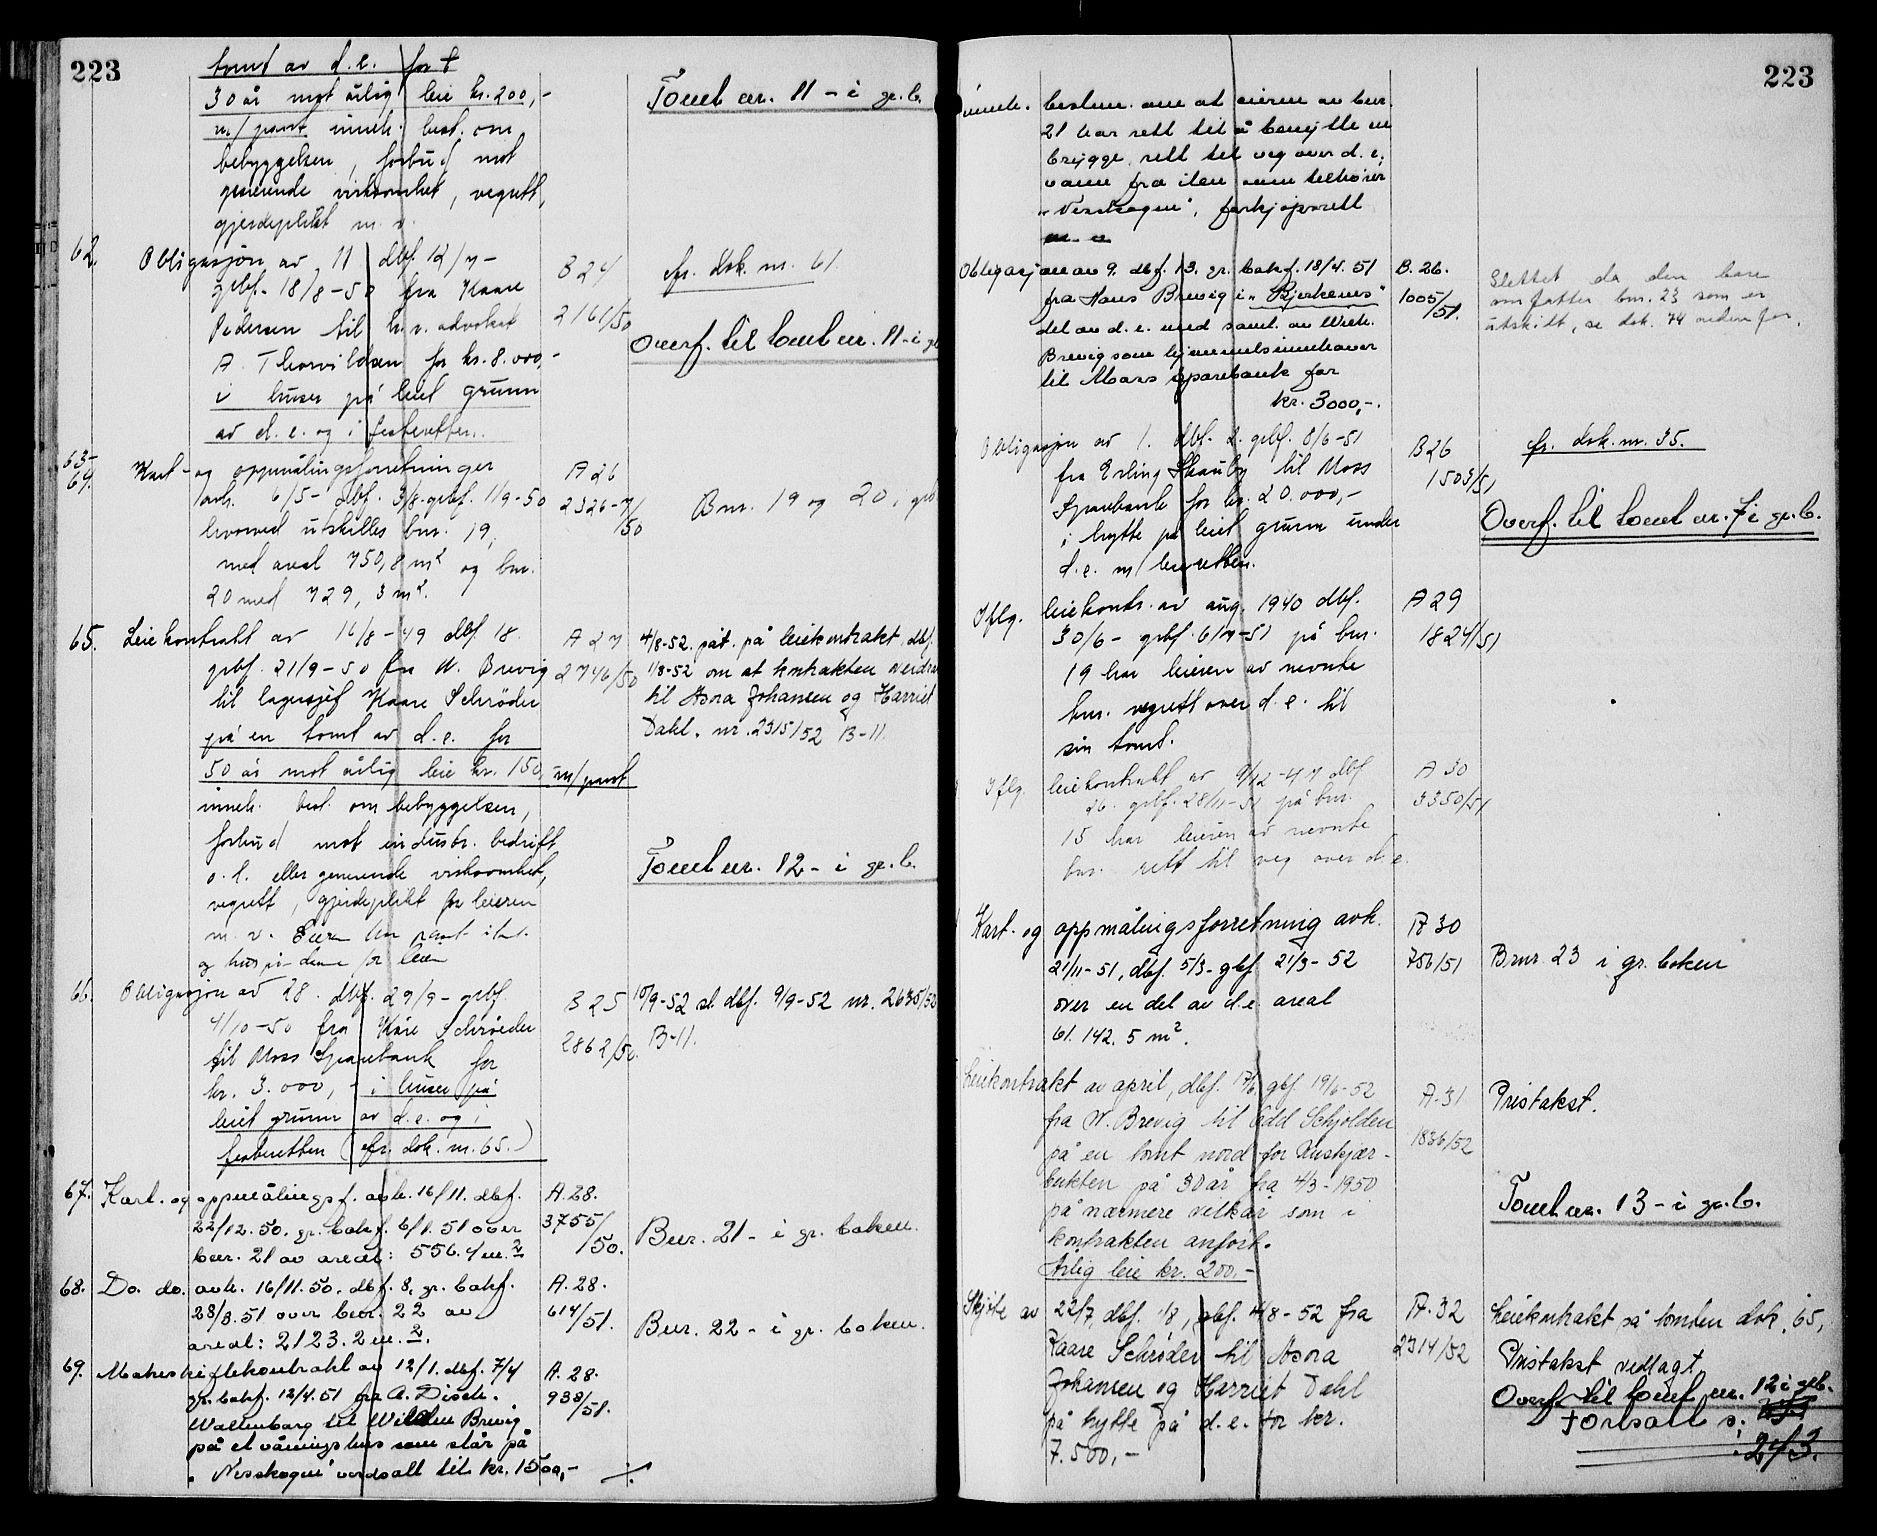 223
tomt av d.e. for
30 år mot årlig leie kr. 200,-
m/pant inneh. best. om
bebyggelsen, forbud mot
generende virksomhet, vegrett,
gjerdeplikt m.v.
Tomt nr. 11 - i gr.b.
62. Obligasjon av 11 dbf. 12/7-
grbf. 18/8-50 fra Kaare
Pedersen til h.r. advokat
A. Thorvildsen for kr. 8.000,-
i huser på leiet grunn
av d.e. og i festeretten.
B 24
2161/50
cfr. dok. nr. 61.
Overf. til tomt nr. 11 - i gr
63-
64. Kart- og oppmålingsforretninger
avh. 6/5- dbf. 3/8-grbf. 11/9-50
hvorved utskilles bnr. 19,
med areal 750,8 m² og bnr.
20 med 729,3 m².
A 26
2326-7/
50
Bnr. 19 og 20, grb
65. Leiekontrakt av 16/8-49 dbf 18.
grbf. 21/9-50 fra W. Brevig
til lagersjef Kaare Schrøder
på en tomt av d.e. for
50 år mot årlig leie kr. 150, m/pant
inneh. best. om bebyggelsen,
forbud mot industr. bedrift
o.l. eller generende virksomhet,
vegrett, gjerdeplikt for leieren
m.v. Eier har pant i
og hus på denne for leien
A 27
2746/50
4/8-52. påt. på leiekontrakt, dbf.
1/8-52 om at kontrakten
til Asora Johansen og Harriet
Dahl. nr. 2315/52 B-11.
Tomt nr. 12 - i gr.b.
66. Obligasjon av 28. dbf. 29/9- grbf.
4/10-50 fra Kåre Schrøder
til Moss Sparebank for
kr. 3.000,- i huser på
leiet grunn av d.e. og i
festeretten (cfr. dok. nr. 65.)
B 25
2862/50.
10/9-52 sl. dbf. 9/9-52 nr. 2635/52
B-11.
67. Kart- og oppmålingsf. avh. 16/11. dbf.
22/12.50. gr.bokf. 6/1.51 over
bnr. 21 av areal: 556.4 m.²
A.28.
3755/
50.
Bnr. 21 - i gr. boken.
68. Do. do. avh. 16/11.50. dbf. 8. gr.bokf.
28/3.51 over bnr. 22 av
areal: 2123.2 m.².
A.28.
614/
51.
Bnr. 22 - i gr. boken.
69. Makeskiftekontrakt av 12/1. dbf. 7/4
gr.bokf. 12/4.51 fra A. Disch-
Wallenborg til Wilhelm Brevig
på et våningshus som står på
"Nesskogen" verdsatt til kr. 1500,-
A.28.
938/
51.
223
inneh. bestem. om at eieren av bnr.
21 har rett til å benytte en
brygge, rett til veg over d.e.,
vann fra ilen som tilhører
"Nesskogen", forkjøpsrett
m.v.
Obligasjon av 9. dbf. 13. gr.bokf. 18/4.51
fra Hans Brevig i "Bjerkenes"
del av d.e. med samt. av Wilh.
Brevig som hjemmelsinnehaver
til Moss Sparebank for
kr. 3000,-.
B.26.
1005/
51.
Slettet da den bare
omfatter bnr. 23 som er
utskilt, se dok. 74 nedenfor.
Obligasjon av 1. dbf. 2. grbf. 8/6-51
fra Erling Skauby til Moss
Sparebank for kr. 20.000,-
i hytte på leiet grunn under
d.e. m/ leieretten.
B26
1503/51
fr. dok. nr. 35.
Overf. til tomt nr. 7 i gr.b.
Iflg. leiekontr. av aug. 1940 dbf.
30/6- grbf. 6/7-51 på bnr.
19 har leieren av nevnte
bnr. vegrett over d.e. til
sin tomt.
A29
1824/51
Iflg. leiekontrakt av 9/12-47 dbf
26. grbf. 28/11-51 på bnr.
15 har leieren av nevnte
bnr. rett til veg over d.e.
A 30
3350/51
Kart- og oppmålingsforretning avh.
21/11-51, dbf. 5/3- gbf 21/3-52
over en del av d.e. areal
61.142.5 m².
A 30
756/51
Bnr. 23 i gr.boken
Leiekontrakt av april, dbf. 17/6 gbf 19/6-52
fra W. Brevig til Odd Schjolden
på en tomt nord for Kuskjær-
bukten på 30 år fra 4/3-1950
på nærmere vilkår som i
kontrakten anført.
Årlig leie kr. 200,-
A.31
1836/52
Pristakst.
Tomt nr. 13 - i gr.b.
Skjøte av 22/7 dbf. 1/8, gbf. 4/8-52 fra
Kaare Schrøder til Asora
Johansen og Harriet Dahl
på hytte på d.e. for kr.
7.500,-
A.32
2314/52
Leiekontrakt på tomten dok. 65,
Pristakst vedlagt
Overf. til tomt nr. 12 i grb.
Fortsatt s:
243.